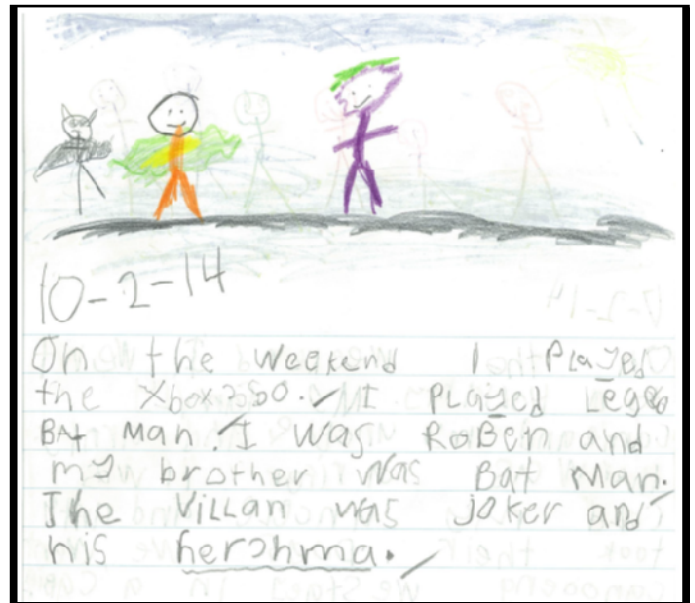 10-2-14
On the weekend I Played
the Xbox360. I Played Lego
BAt Man. I was RoBen and
my brother was Bat Man.
The ViLLan was joker and
his herohma.